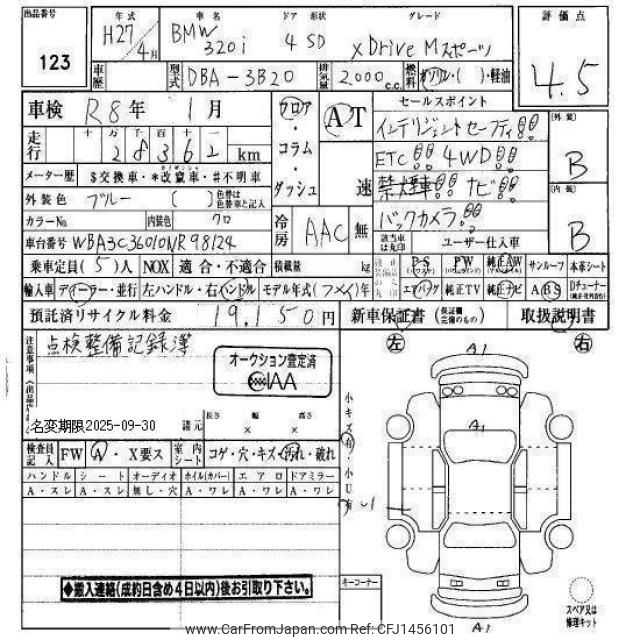 出品番号
123
年式
H27年 4月
車名
BMW
320i
ドア 形状
4 SD
グレード
xDrive Mスポーツ
評価点
4.5
車歴
型式
DBA-3B20
排気量
2,000 c.c.
燃料
ガソリン・( )・軽油
車検 R8年 1月
走行
十 万 千 百 十 一
2 8 3 6 2 km
メーター歴 $交換車・*改竄車・#不明車
外装色 ブルー ( ) 色替は色替車と記入
カラーNo. 内装色 クロ
車台番号 WBA3C36010NR98124
フロア・コラム・ダッシュ
AT
速
冷房 AAC 無
セールスポイント
インテリジェントセーフティ!!
ETC!! 4WD!!
禁煙車!! ナビ!!
バックカメラ!!
該当車は丸印
ユーザー仕入車
[外装]
B
[内装]
B
乗車定員(5)人 NOX 適合・不適合 積載量 kg
P·S PW 純正AW サンルーフ 本革シート
輸入車 ディーラー・並行 左ハンドル・右ハンドル モデル年式(フメイ)年
エアバッグ 純正TV 純正ナビ ABS Dチューナー
預託済リサイクル料金 19,150円
新車保証書 (保証欄完備のもの) 取扱説明書
注意事項
点検整備記録簿
オークション査定済
AA
名変期限2025-09-30
諸元
長さ 幅 高さ
× ×
検査員記入 FW A・X要ス 室内シート コゲ・穴・キズ・汚れ・破れ
ハンドル シート オーディオ ホイル(カバー) エアロ ドアミラー
A・スレ A・スレ 無し・穴 A・ワレ A・ワレ A・ワレ
◆搬入連絡(成約日含め4日以内)後お引取り下さい。
左
右
A1
A1
A1
小キズ有・小U有
U1
キーコーナー
スペア又は修理キット
www.CarFromJapan.com Ref: CFJ1456101